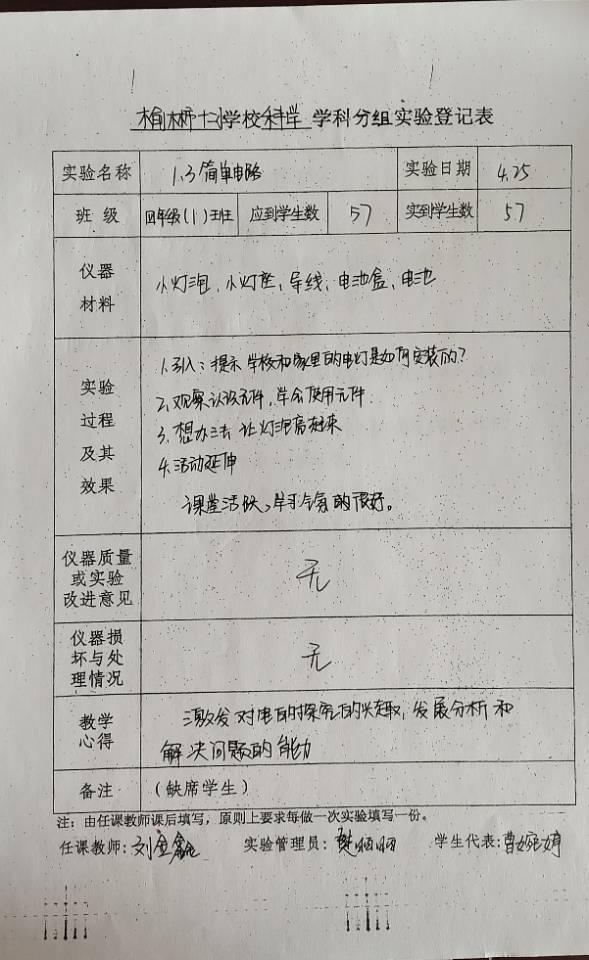 学校科学学科分组实验登记表
实验名称 1.3简单电路 实验日期 4.25
班 级 四年级(1)班 应到学生数 57 实到学生数 57
仪器
材料
小灯泡、小灯座、导线、电池盒、电池
实验
过程
及其
效果
1.引入:提示 学校和家里的电灯是如何安装的?
2.观察认识元件,学会使用元件.
3.想办法让灯泡亮起来
4.活动延伸
课堂活跃,学习的很好。
仪器质量
或实验
改进意见
无
仪器损
坏与处
理情况
无
教学
心得
激发对电的探究的兴趣,发展分析和
解决问题的能力
备注 (缺席学生)
注:由任课教师课后填写,原则上要求每做一次实验填写一份。
任课教师:刘 实验管理员: 学生代表:曹婉婷